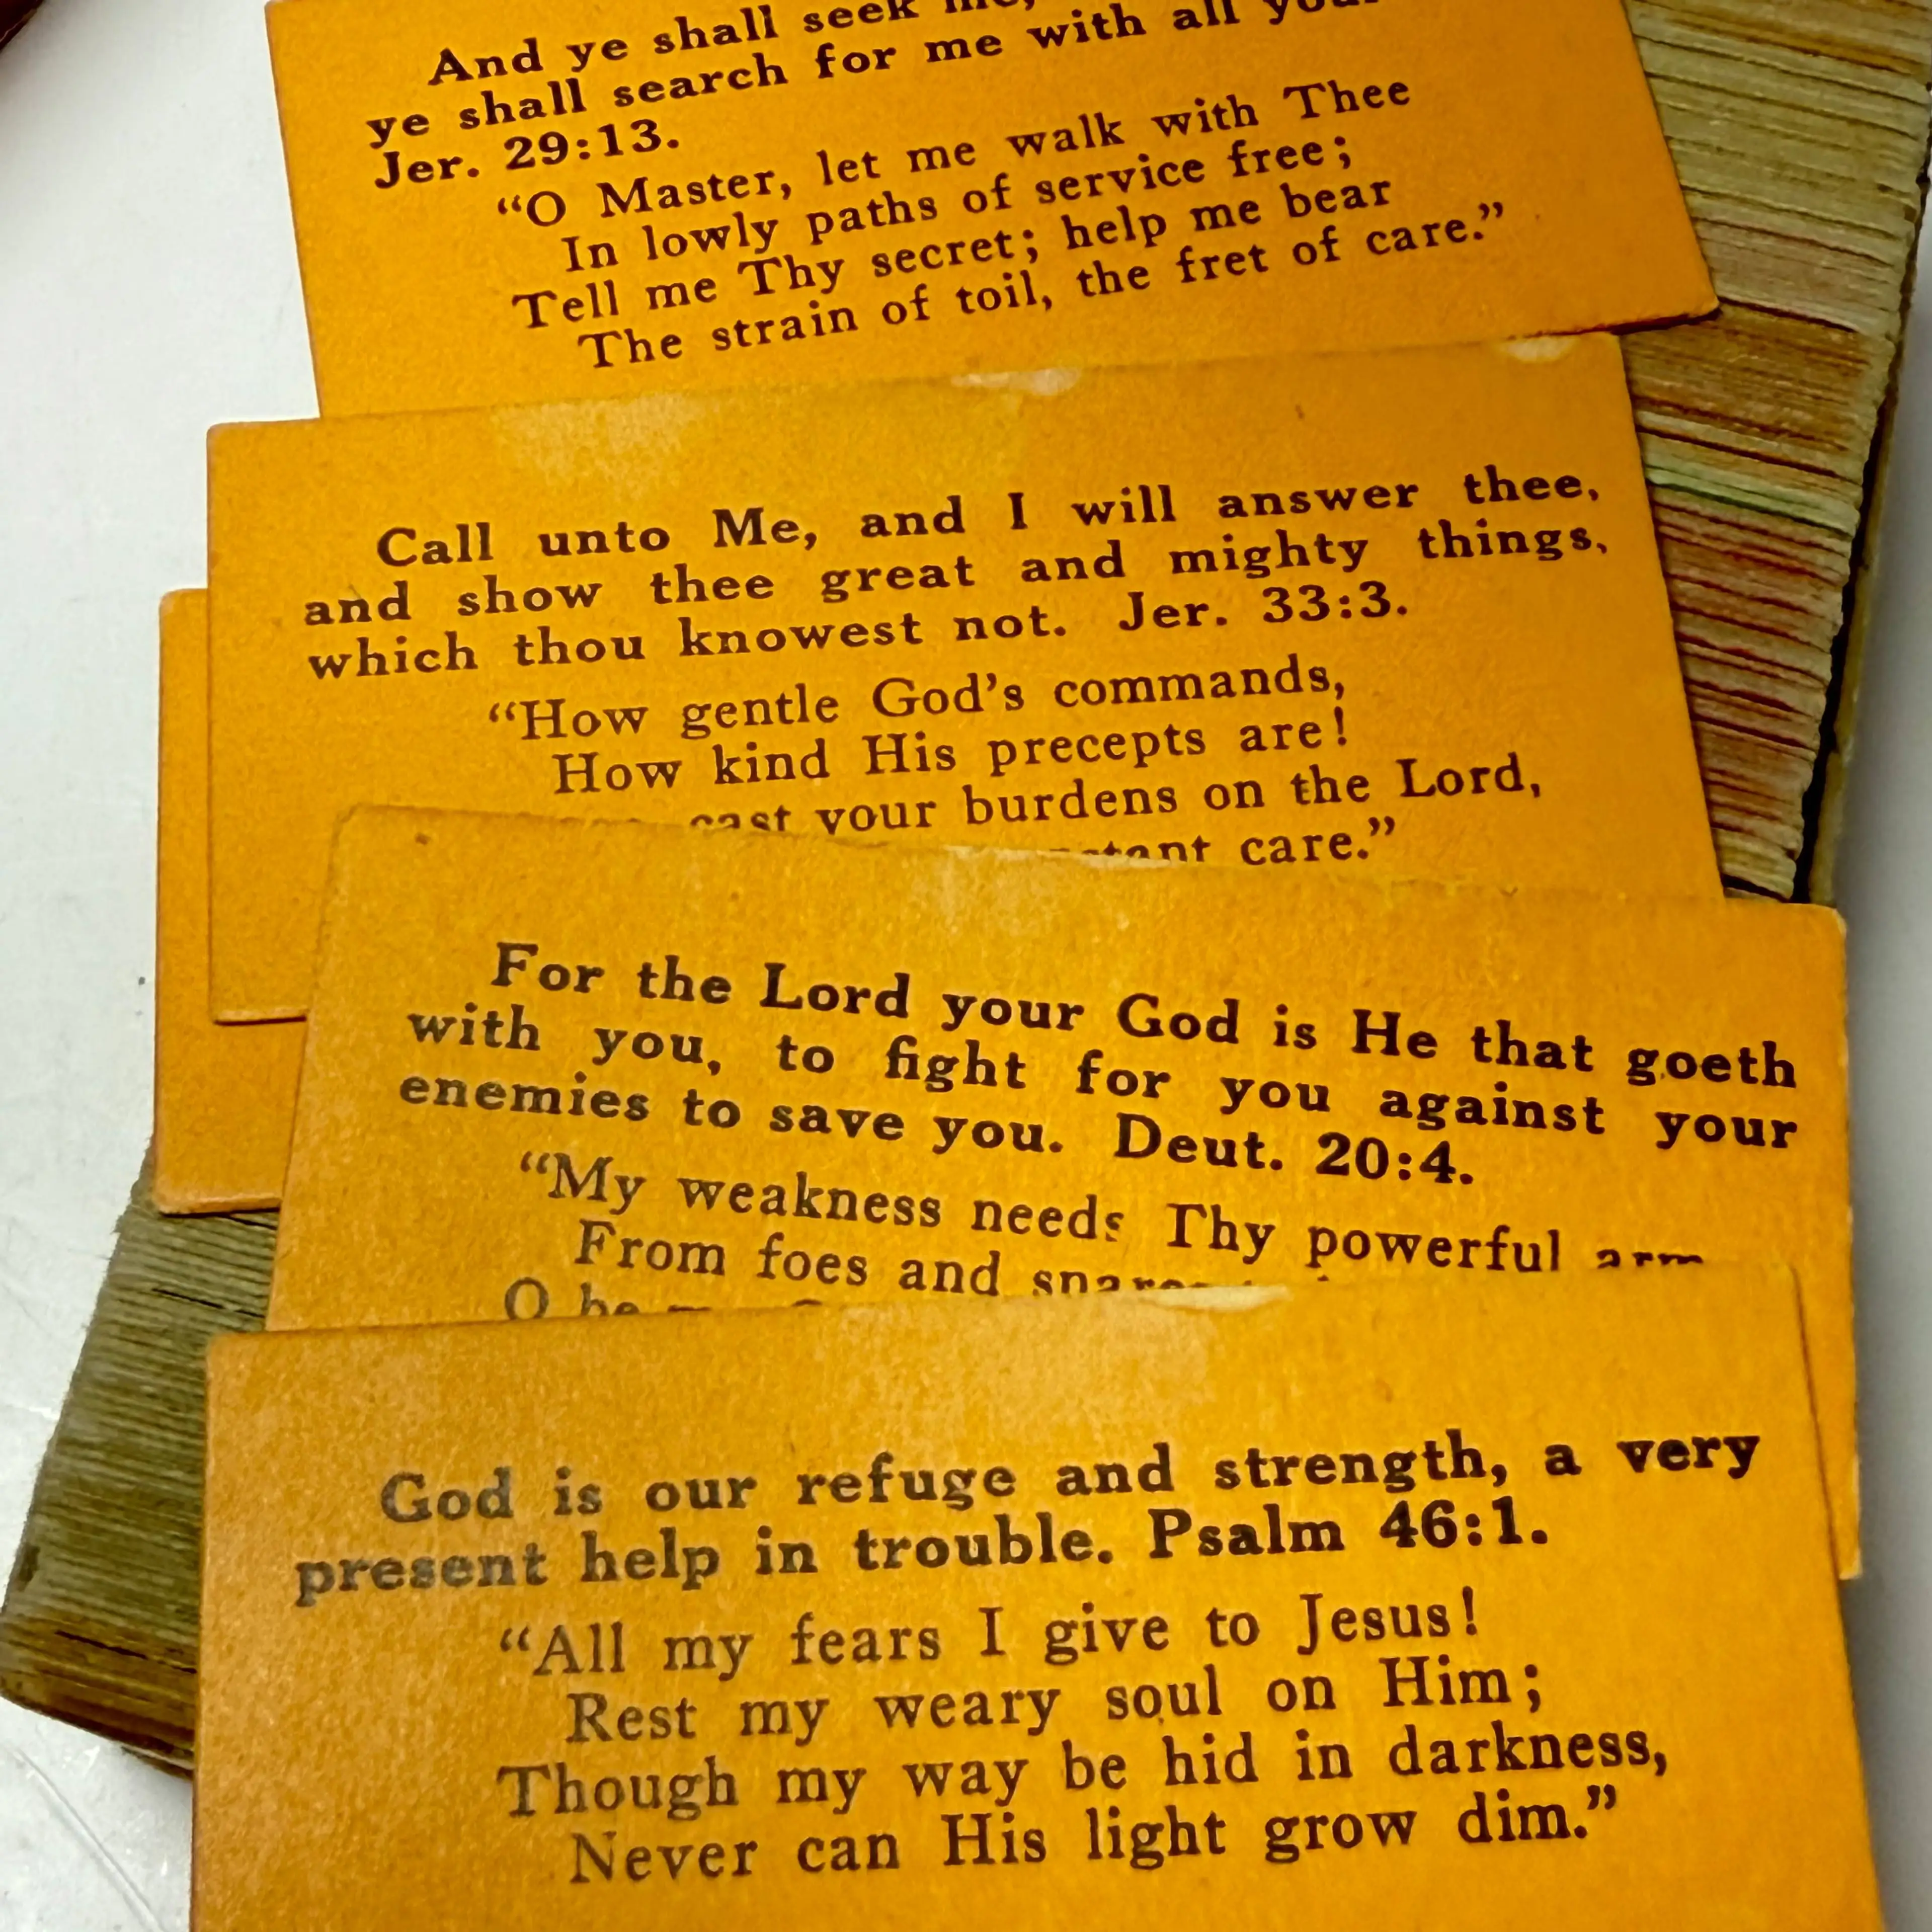 And ye shall seek me,
ye shall search for me with all
Jer. 29:13.
"O Master, let me walk with Thee
In lowly paths of service free;
Tell me Thy secret; help me bear
The strain of toil, the fret of care."
Call unto Me, and I will answer thee,
and show thee great and mighty things,
which thou knowest not. Jer. 33:3.
"How gentle God's commands,
How kind His precepts are!
cast your burdens on the Lord,
care."
For the Lord your God is He that goeth
with you, to fight for you against your
enemies to save you. Deut. 20:4.
"My weakness needs Thy powerful arm
From foes and
O be
God is our refuge and strength, a very
present help in trouble. Psalm 46:1.
"All my fears I give to Jesus!
Rest my weary soul on Him;
Though my way be hid in darkness,
Never can His light grow dim."